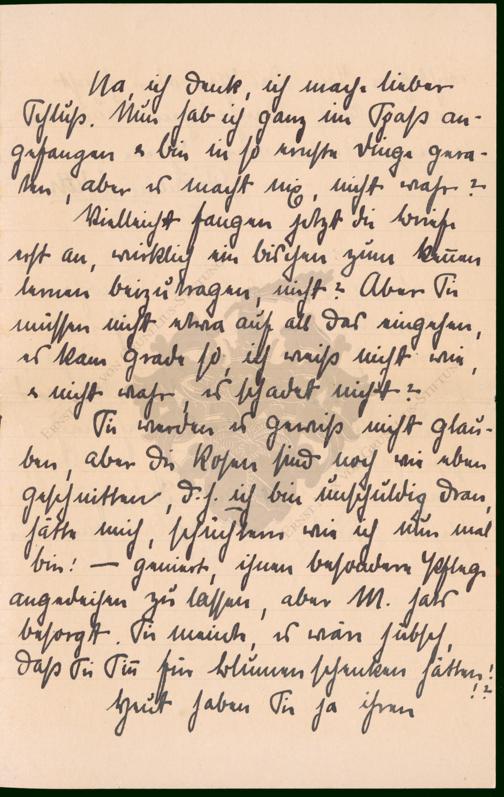 Na, ich denk, ich mache lieber
Schluß. Nun hab ich ganz im Spaß an-
gefangen & bin in so ernste Dinge gera-
ten, aber es macht nix, nicht wahr?
Vielleicht fangen jetzt die Briefe
erst an, wirklich ein bischen zum kennen
lernen beizutragen, nicht? Aber Sie
müssen nicht etwa auf all das eingehen,
es kam grade so, ich weiß nicht wie,
& nicht wahr, es schadet nicht?
Sie werden es gewiß nicht glau-
ben, aber die Rosen sind noch wie eben
geschnitten, d.h. ich bin unschuldig dran,
hätte mich, schüchtern wie ich nun mal
bin! — geniert, ihnen besondere Pflege
angedeihen zu lassen, aber M. hats
besorgt. Sie meinte, es wär hübsch,
daß Sie Sinn für Blumen schenken hätten!
!?
Heut haben Sie ja ihren